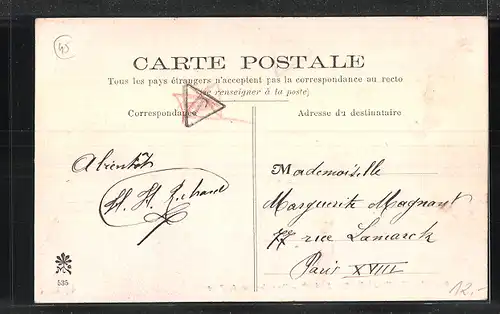 45
CARTE POSTALE
Tous les pays étrangers n'acceptent pas la correspondance au recto
(se renseigner à la poste)
Correspondance
Adresse du destinataire
Abientôt
Mademoiselle
Marguerite Magnant
77 rue Lamarck
Paris XVIII
535
12.-